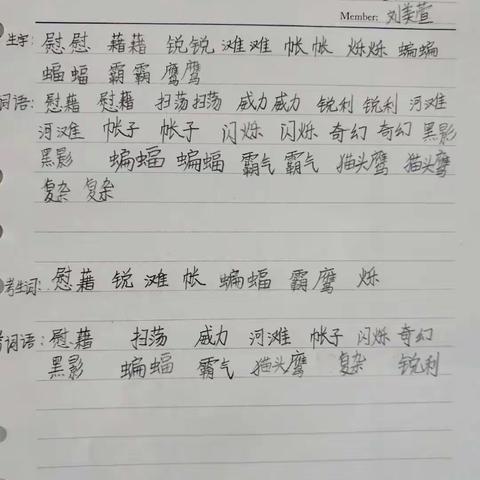 Member: 刘美萱
生字: 慰慰 藉藉 锐锐 滩滩 帐帐 烁烁 蝙蝙
蝠蝠 霸霸 鹰鹰
词语: 慰藉 慰藉 扫荡扫荡 威力威力 锐利 锐利 河滩
河滩 帐子 帐子 闪烁 闪烁 奇幻 奇幻 黑影
黑影 蝙蝠 蝙蝠 霸气 霸气 猫头鹰 猫头鹰
复杂 复杂
考生词: 慰藉 锐 滩 帐 蝙蝠 霸鹰 烁
考词语: 慰藉 扫荡 威力 河滩 帐子 闪烁 奇幻
黑影 蝙蝠 霸气 猫头鹰 复杂 锐利